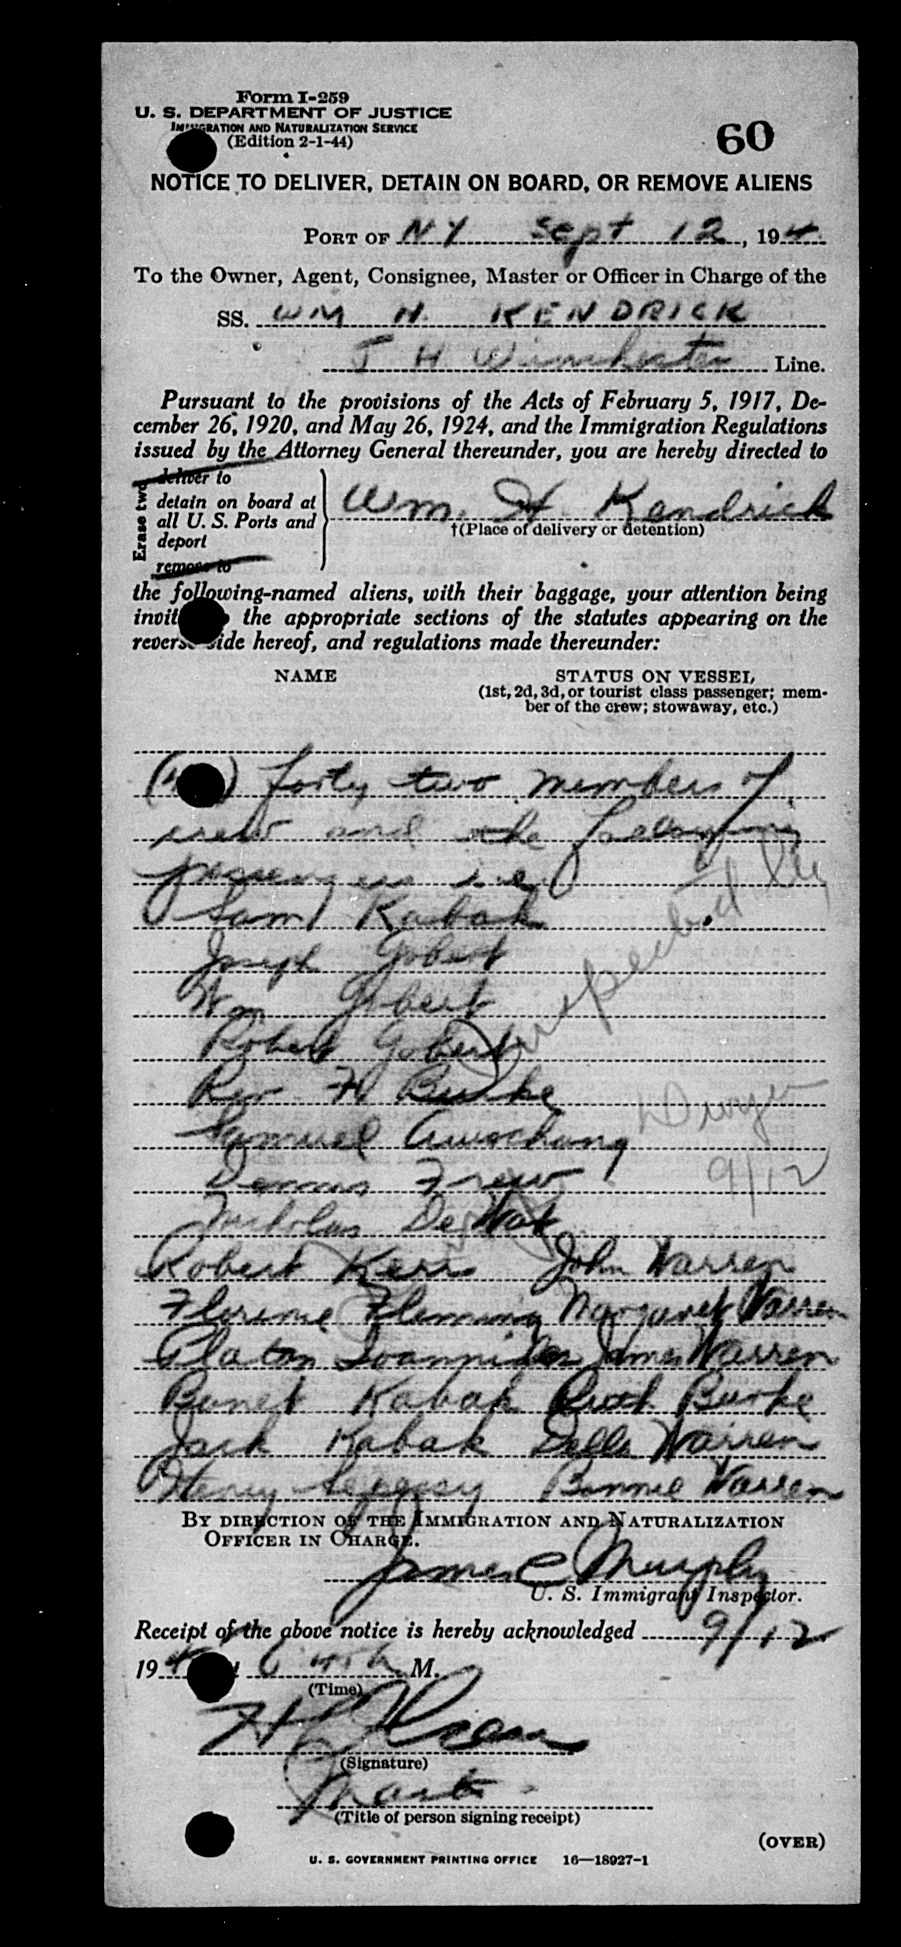 Form I-259
U. S. DEPARTMENT OF JUSTICE
IMMIGRATION AND NATURALIZATION SERVICE
(Edition 2-1-44)
60
NOTICE TO DELIVER, DETAIN ON BOARD, OR REMOVE ALIENS
PORT OF NY Sept 12, 194
To the Owner, Agent, Consignee, Master or Officer in Charge of the
SS. WM H. KENDRICK
J H Winchester Line.
Pursuant to the provisions of the Acts of February 5, 1917, De-
cember 26, 1920, and May 26, 1924, and the Immigration Regulations
issued by the Attorney General thereunder, you are hereby directed to
Erase two
deliver to
detain on board at
all U. S. Ports and
deport
remove to
Wm. H. Kendrick
†(Place of delivery or detention)
the following-named aliens, with their baggage, your attention being
invit the appropriate sections of the statutes appearing on the
reverse side hereof, and regulations made thereunder:
NAME STATUS ON VESSEL
(1st, 2d, 3d, or tourist class passenger; mem-
ber of the crew; stowaway, etc.)
( ) forty two members of
crew and the following
passengers i.e.
Saml Kabak
Joseph Gobert
Wm Gobert
Robert Gobert
Inspected
Rev. H Burke
Dwyer
Samuel
9/12
Dennis Frew
Nicholas De
Robert Kerr John Warren
Fleming Margaret Warren
Platon Ioannides James Warren
Kabak Ruth Burke
Jack Kabak Della Warren
Henry Bonnie Warren
BY DIRECTION OF THE IMMIGRATION AND NATURALIZATION
OFFICER IN CHARGE.
James C Murphy
U. S. Immigrant Inspector.
Receipt of the above notice is hereby acknowledged 9/12
194 M.
(Time)
H Olsen
(Signature)
Master
(Title of person signing receipt)
(OVER)
U. S. GOVERNMENT PRINTING OFFICE 16—18927-1